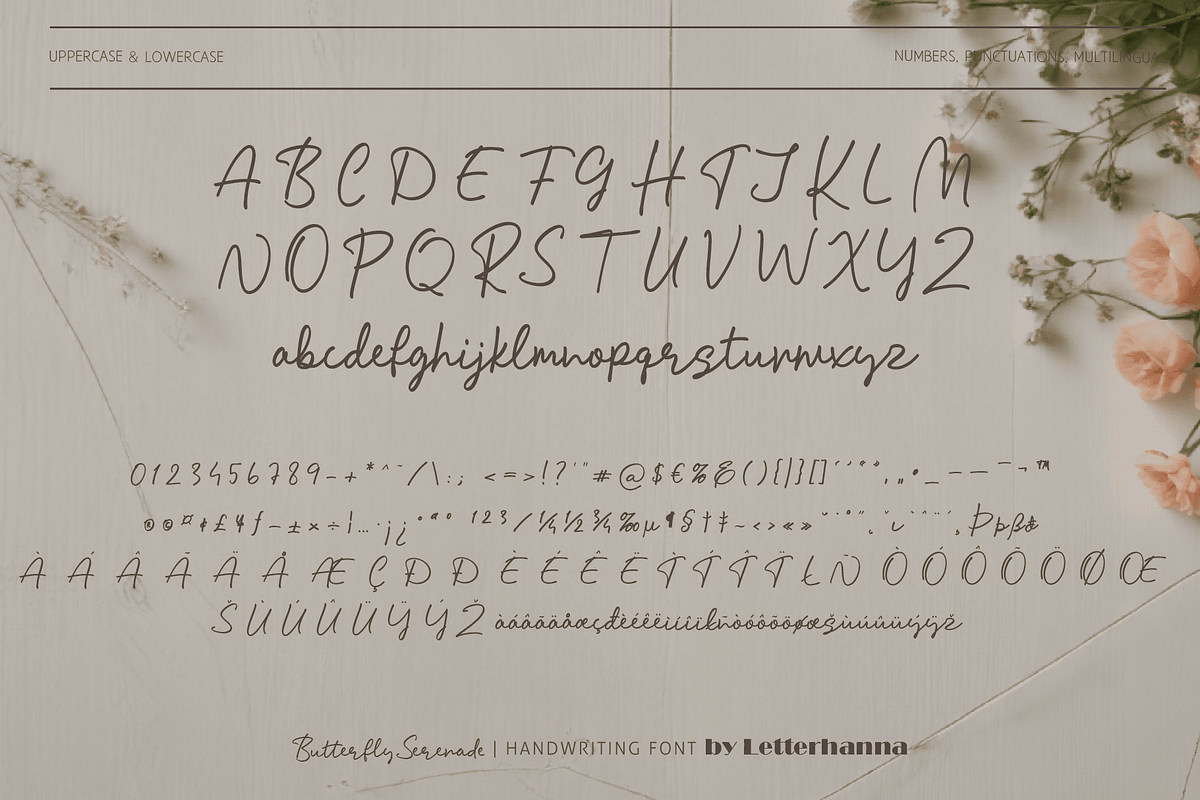 UPPERCASE & LOWERCASE
NUMBERS, PUNCTUATIONS, MULTILINGUAL
A B C D E F G H I J K L M
N O P Q R S T U V W X Y Z
abcdefghijklmnopqrstuvwxyz
0 1 2 3 4 5 6 7 8 9 - + * ^ ~ / \ : ; < = > ! ? ' " # @ $ € % & ( ) { | } [ ] ‘ ’ “ ” , „ • _ – — ¯ ¬ ™
® © ¤ ¢ £ ¥ ƒ - ± × ÷ ¦ … · ¡ ¿ ° ª º 1 2 3 / ¼ ½ ¾ ‰ µ ¶ § † ‡ ~ ‹ › « » Þ þ ß
À Á Â Ã Ä Å Æ Ç Ð Đ È É Ê Ë Ì Í Î Ï Ł Ñ Ò Ó Ô Õ Ö Ø Œ
Š Ù Ú Û Ü Ÿ Ý Ž àáâãäåæçđèéêëìíîïłñòóôõöøœšùúûüýÿž
Butterfly Serenade | HANDWRITING FONT by Letterhanna